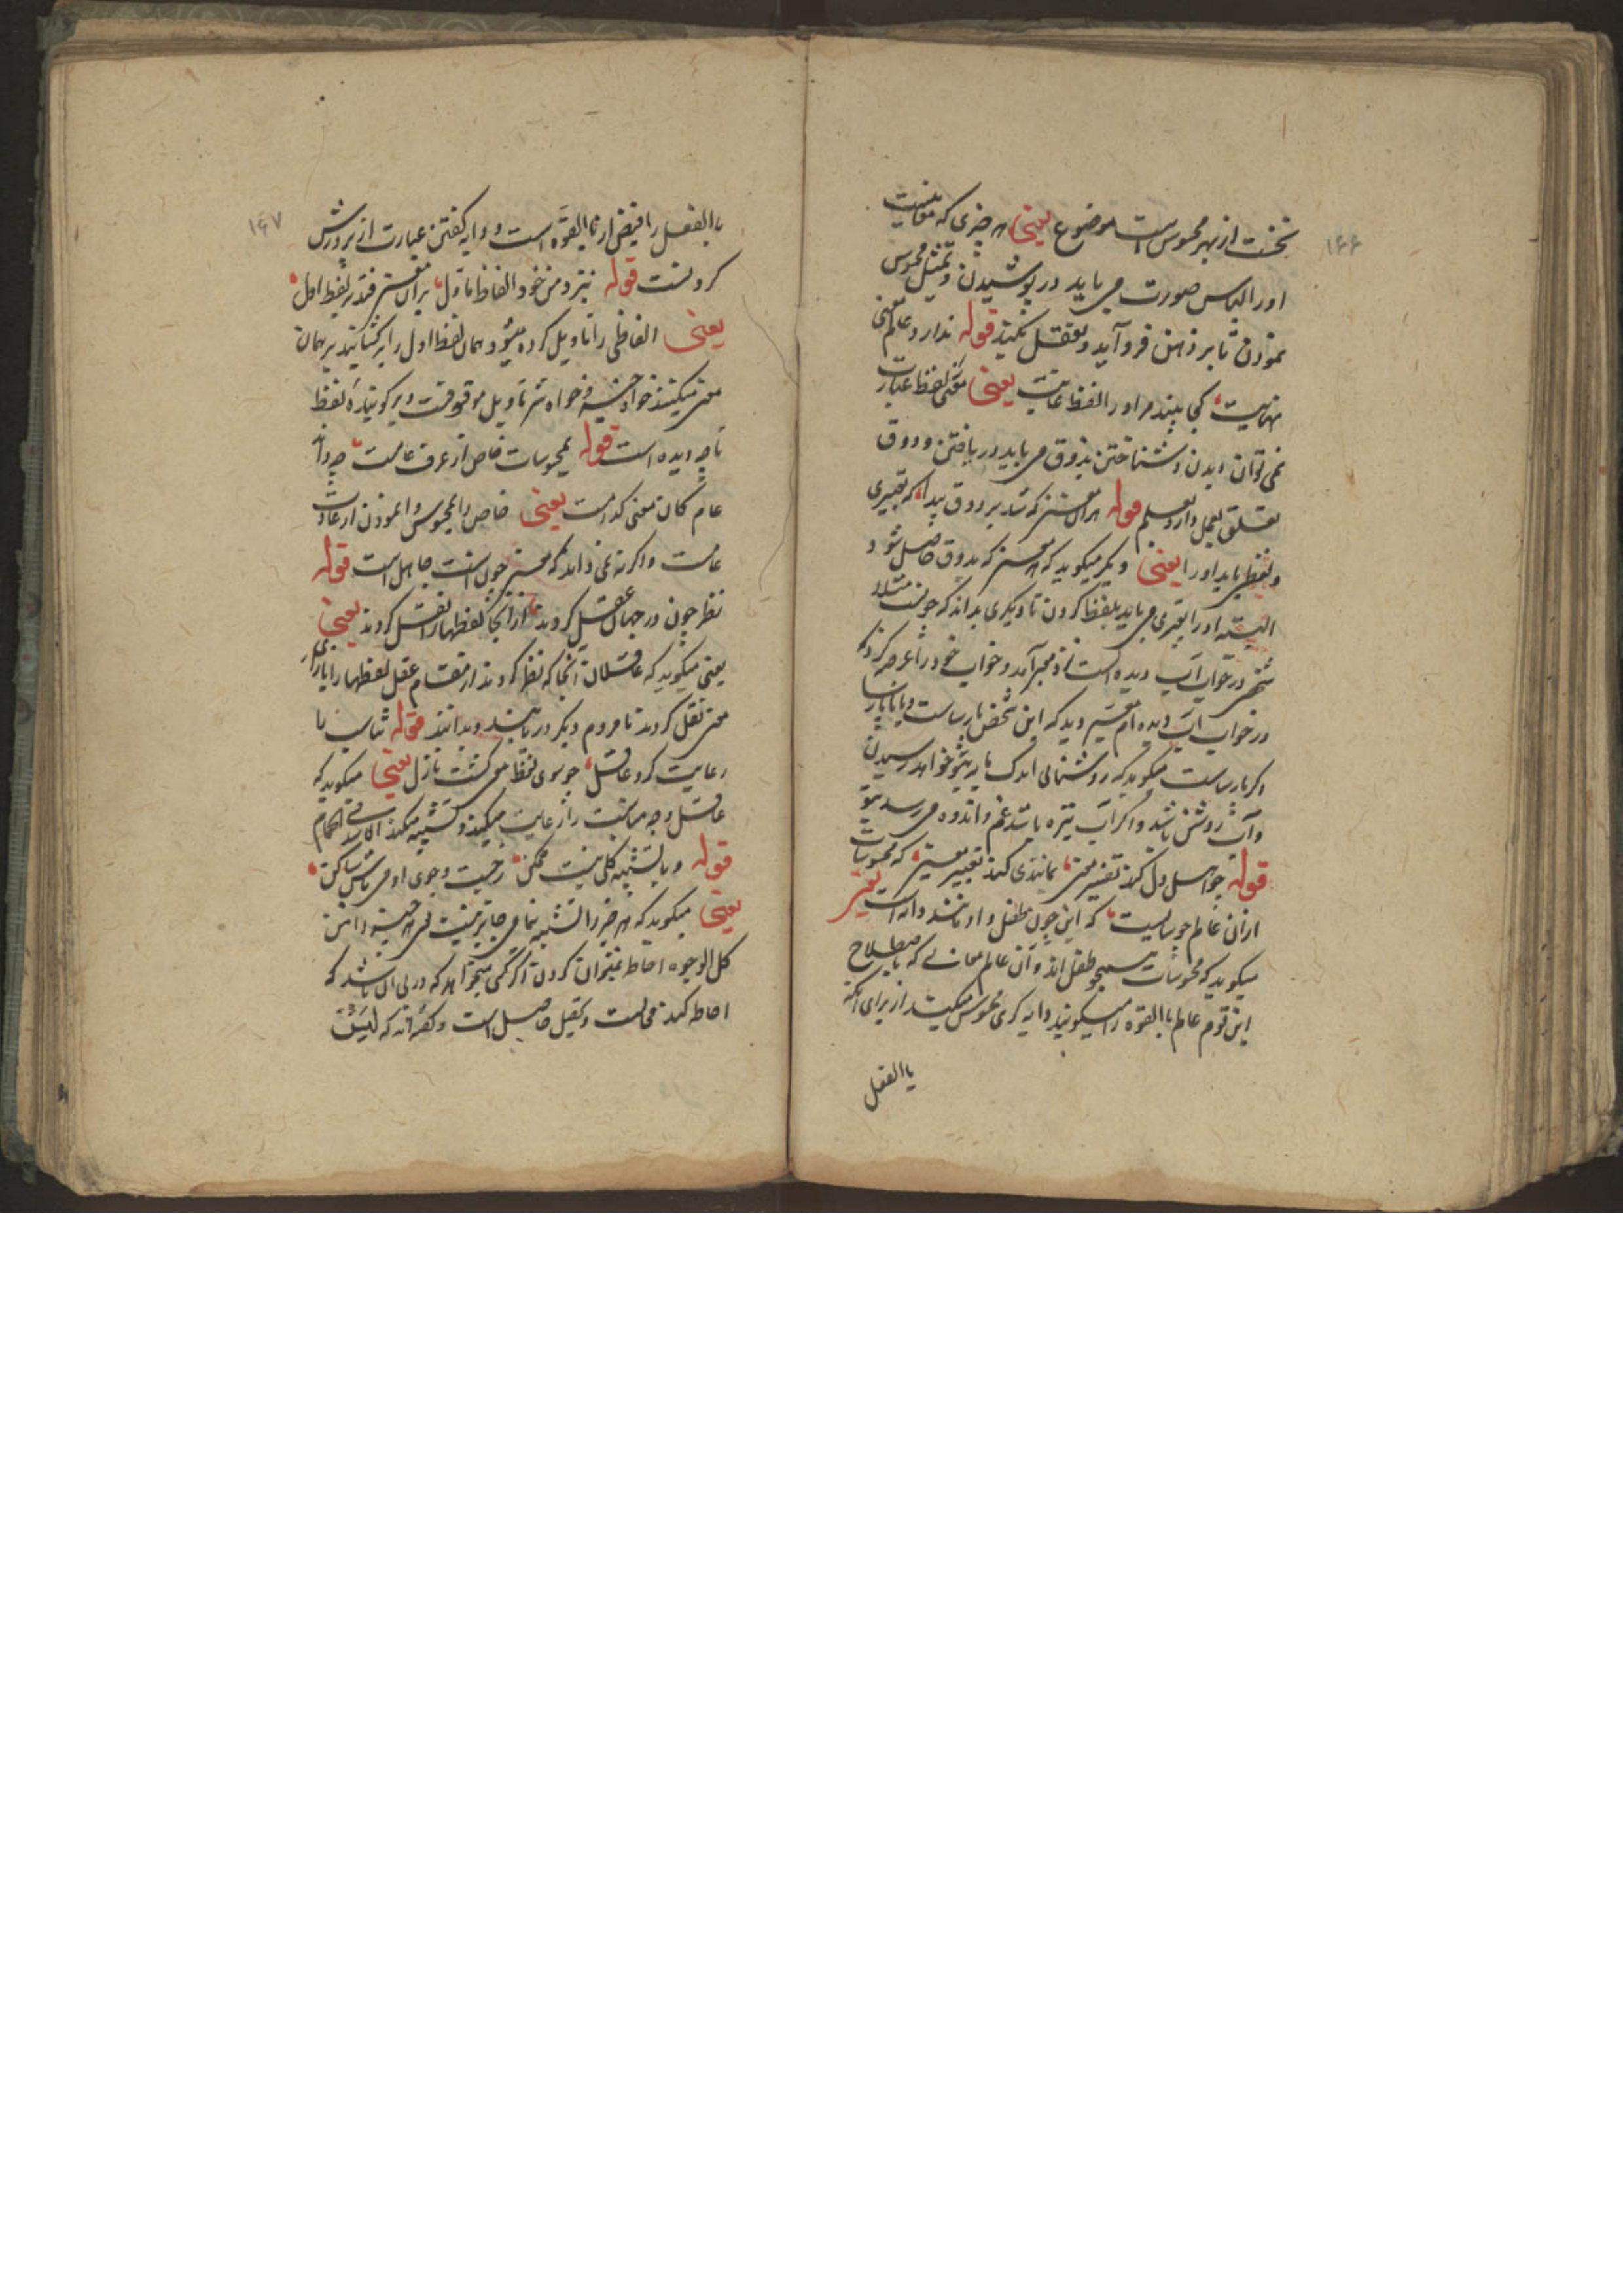 ۱۶۶
نخست از بهر محسوس است موضوع یعنی هر چیزی که
او را لباس صورت می باید در پوشیدن و تمثیل محسوس
نمودن تا بر ذهن فرو آید و تعقل بکند قوله ندارد عالم معنی
نهایت کجا بیند مر او را لفظ غایت یعنی معنی لفظ عبارت
نمی توان دیدن و شناختن بذوق می باید دریافتن و ذوق
تعلق بعمل دارد بعلم قوله هر آن معنی که شد بر ذوق پیدا که تعبیری
ولفظی باید او را یعنی دیگر میگوید که هر معنی که بذوق حاصل شود
البته او را تعبیری می باید بلفظ کردن تا دیگری بداند که چونست مثلا
شخصی در خواب آب دیده است نزد معبر آمد و خواب خود را عرضه کرد که
در خواب آب دیده ام معبر دید که این شخص پارساست و یا ناپارسا
اگر پارساست میگوید که روشنائی اندک مایه بتو خواهد رسیدن
و آب روشن باشد و اگر آب تیره باشد غم و اندوه می رسد بتو
قوله چو اهل دل کند تفسیر معنی بمانندی کند تعبیر معنی که محسوسات
از آن عالم چو سایست که این چون طفل و او مانند دایه است یعنی
میگوید که محسوسات همچو طفل اند و آن عالم معانی که باصطلاح
این قوم عالم باالقوه را میگویند دایه گری محسوس میکند از برای آنکه
باالفعل
۱۶۷
باالفعل را فیض از ناالقوه است و دایه گفتن عبارت از پرورش
کردنست قوله بنزد من خود الفاظ ماول بر آن معنی فتد بر لفظ اول
یعنی الفاظی را تاویل کرده میشود همان لفظ اول را بر گشایند بر همان
معنی میکشند خواه و خواه شر تاویل موقوفست و بر گوینده لفظ
تا چه دیده است قوله بمحسوسات خاص از عرف عامست چه داند
عام کان معنی کدامست یعنی خاص را محسوس وا نمودن از عادت
عامست و اگر نه نمی داند که معنی چون است جاهل است قوله
نظر چون در جهان عقل کردند از آنجا لفظها را نقل کردند یعنی
یعنی میگوید که عاقلان آنجا که نظر کردند از مقام عقل لفظها را بازای
معنی نقل کردند تا مردم دیگر دریابند و بدانند قوله تناسب را
رعایت کرد عاقل چو سوی لفظ معنی گشت نازل یعنی میگوید که
عاقل وجه مناسبت را رعایت میکند و تشبیه میکند
قوله و با تشبیه کلی نیست ممکن ز جست و جوی او می باش ساکن
یعنی میگوید که هر چیز را تشبیه تمامی جایز نیست
کل الوجوه احاطه نمیتوان کردن اگر کسی میخواهد که در پی آن باشد که
احاطه کند محالست و تحصیل حاصل است و گفته اند که لیس